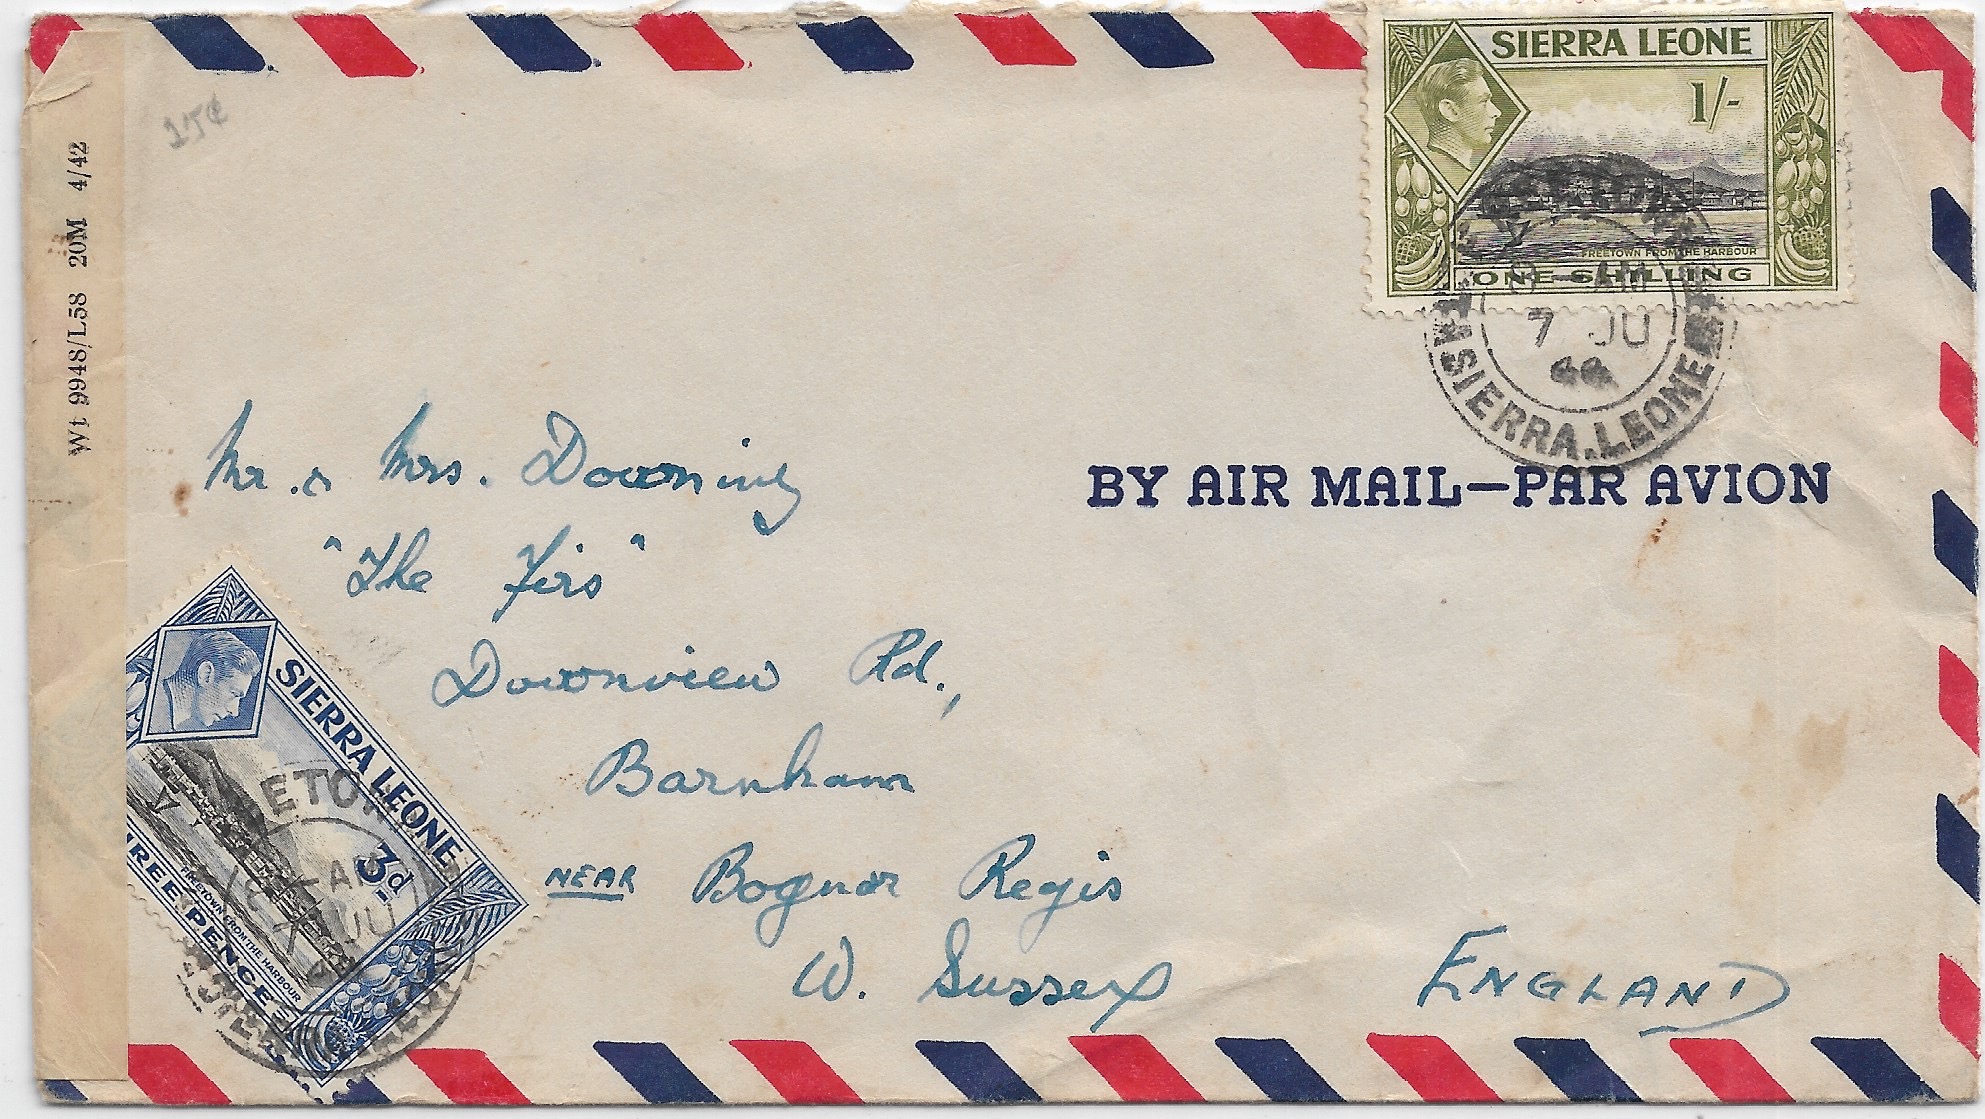 25¢
Wt 9948/L58 20M 4/42
SIERRA LEONE
1/-
FREETOWN FROM THE HARBOUR
ONE SHILLING
AM
7 JU
44
SIERRA.LEONE
BY AIR MAIL—PAR AVION
Mr. & Mrs. Downing
"The Firs"
Downview Rd.,
Barnham
NEAR Bognor Regis
W. Sussex
ENGLAND
SIERRA LEONE
3d
FREETOWN FROM THE HARBOUR
THREE PENCE
ETOW
AM
7 JU